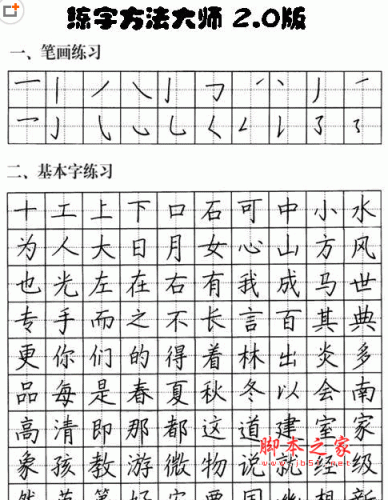 练字方法大师 2.0版
一、笔画练习
二、基本字练习
十工上下口石可中小水
为人大日月女心山方风
也光左在右有我成马世
专手而之不长言百其典
更你们的得着林出炎多
品每是春夏秋冬以会南
高清即那都这道建室家
象孩教游微物说就经级
脚本之家
www.jb51.net